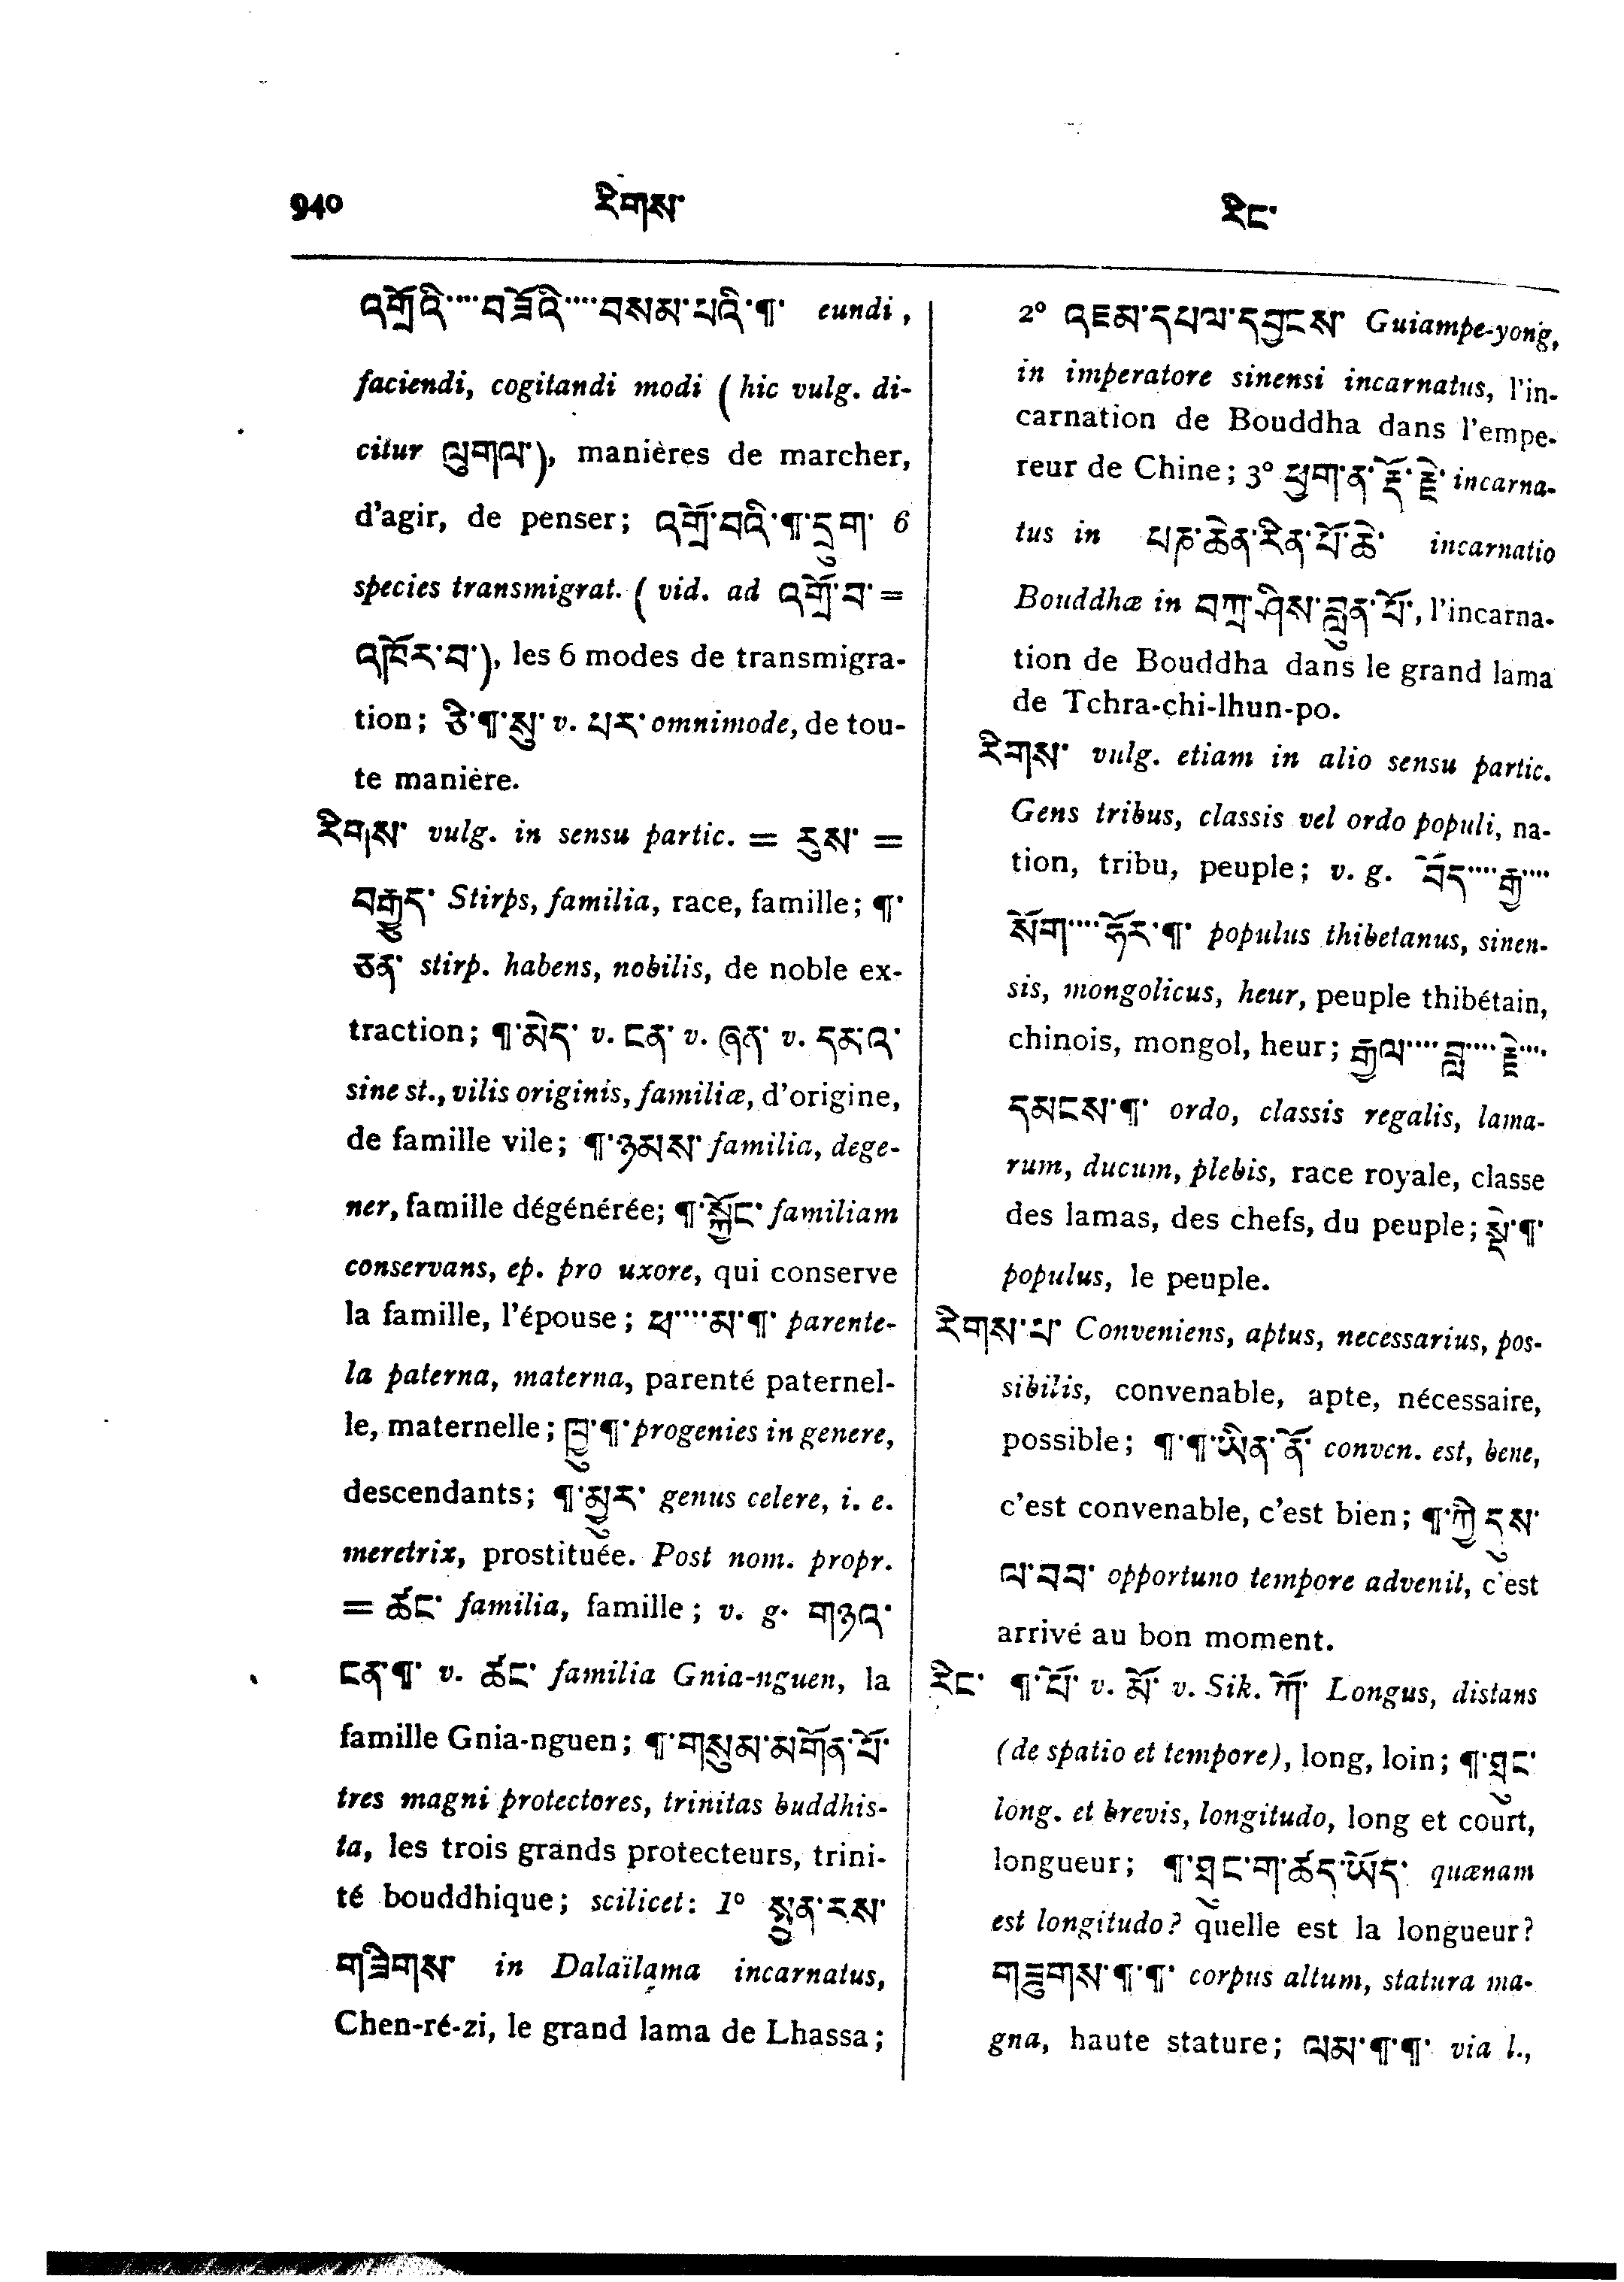 940 རིགས་ རིང་
འགྲོའི་····བཟོའི་····བསམ་པའི་¶་ eundi,
faciendi, cogitandi modi (hic vulg. di-
citur ལུགལ་), manières de marcher,
d'agir, de penser; འགྲོ་བའི་¶་དྲུག་ 6
species transmigrat. (vid. ad འགྲོ་བ་ =
འཁོར་བ་), les 6 modes de transmigra-
tion; ཅི་¶་སུ་ v. པར་ omnimode, de tou-
te manière.
རིགས་ vulg. in sensu partic. = རུས་ =
བརྒྱུད་ Stirps, familia, race, famille; ¶་
ཅན་ stirp. habens, nobilis, de noble ex-
traction; ¶་མེད་ v. ངན་ v. ཞན་ v. དམའ་
sine st., vilis originis, familiæ, d'origine,
de famille vile; ¶་ཉམས་ familia, dege-
ner, famille dégénérée; ¶་སྐྱོང་ familiam
conservans, ep. pro uxore, qui conserve
la famille, l'épouse; ཕ་····མ་¶་ parente-
la paterna, materna, parenté paternel-
le, maternelle; ཁྱུ་¶་ progenies in genere,
descendants; ¶་མྱུར་ genus celere, i. e.
meretrix, prostituée. Post nom. propr.
= ཚང་ familia, famille; v. g. གཉའ་
ངན་¶་ v. ཚང་ familia Gnia-nguen, la
famille Gnia-nguen; ¶་གསུམ་མགོན་པོ་
tres magni protectores, trinitas buddhis-
ta, les trois grands protecteurs, trini-
té bouddhique; scilicet: 1º སྤྱན་རས་
གཟིགས་ in Dalaïlama incarnatus,
Chen-ré-zi, le grand lama de Lhassa;
2º འཇམ་དཔལ་དབྱངས་ Guiampe-yong,
in imperatore sinensi incarnatus, l'in-
carnation de Bouddha dans l'empe-
reur de Chine; 3º ཕྱག་ན་རྡོ་རྗེ་ incarna-
tus in པཎ་ཆེན་རིན་པོ་ཆེ་ incarnatio
Bouddhæ in བཀྲ་ཤིས་ལྷུན་པོ་, l'incarna-
tion de Bouddha dans le grand lama
de Tchra-chi-lhun-po.
རིགས་ vulg. etiam in alio sensu partic.
Gens tribus, classis vel ordo populi, na-
tion, tribu, peuple; v. g. བོད་····རྒྱ་····
སོག་····ཧོར་¶་ populus thibetanus, sinen-
sis, mongolicus, heur, peuple thibétain,
chinois, mongol, heur; རྒྱལ་····བླ་····རྗེ་····
དམངས་¶་ ordo, classis regalis, lama-
rum, ducum, plebis, race royale, classe
des lamas, des chefs, du peuple; སྡེ་¶་
populus, le peuple.
རིགས་པ་ Conveniens, aptus, necessarius, pos-
sibilis, convenable, apte, nécessaire,
possible; ¶་¶་ཡིན་ནོ་ conven. est, bene,
c'est convenable, c'est bien; ¶་ཀྱི་དུས་
ལ་བབ་ opportuno tempore advenit, c'est
arrivé au bon moment.
རིང་ ¶་པོ་ v. མོ་ v. Sik. ཀོ་ Longus, distans
(de spatio et tempore), long, loin; ¶་ཐུང་
long. et brevis, longitudo, long et court,
longueur; ¶་ཐུང་ག་ཚད་ཡོད་ quænam
est longitudo? quelle est la longueur?
གཟུགས་¶་¶་ corpus altum, statura ma-
gna, haute stature; ལམ་¶་¶་ via l.,